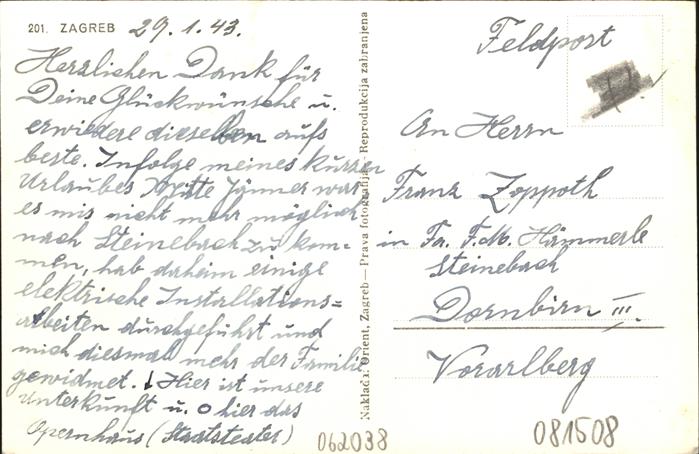 201. ZAGREB 29.1.43.
Herzlichen Dank für
Deine Glückwünsche u.
erwiedere dieselben aufs
beste. Infolge meines kurzen
Urlaubes Mitte Jänner war
es mis nicht mehr möglich
nach Steinebach zu kom=
men, hab daheim einige
elektrische Installations=
arbeiten durchgeführt und
mich diesmal mehr der Familie
gewidmet. ↓ Hier ist unsere
Unterkunft u. o hier das
Opernhaus (Staatsteater)
062038
Naklada: Orient, Zagreb — Prava fotografija Reprodukcija zabranjena
Feldpost
An Herrn
Franz Zoppoth
in Fa. F.M. Hämmerle
Steinebach
Dornbirn III.
Vorarlberg
081508